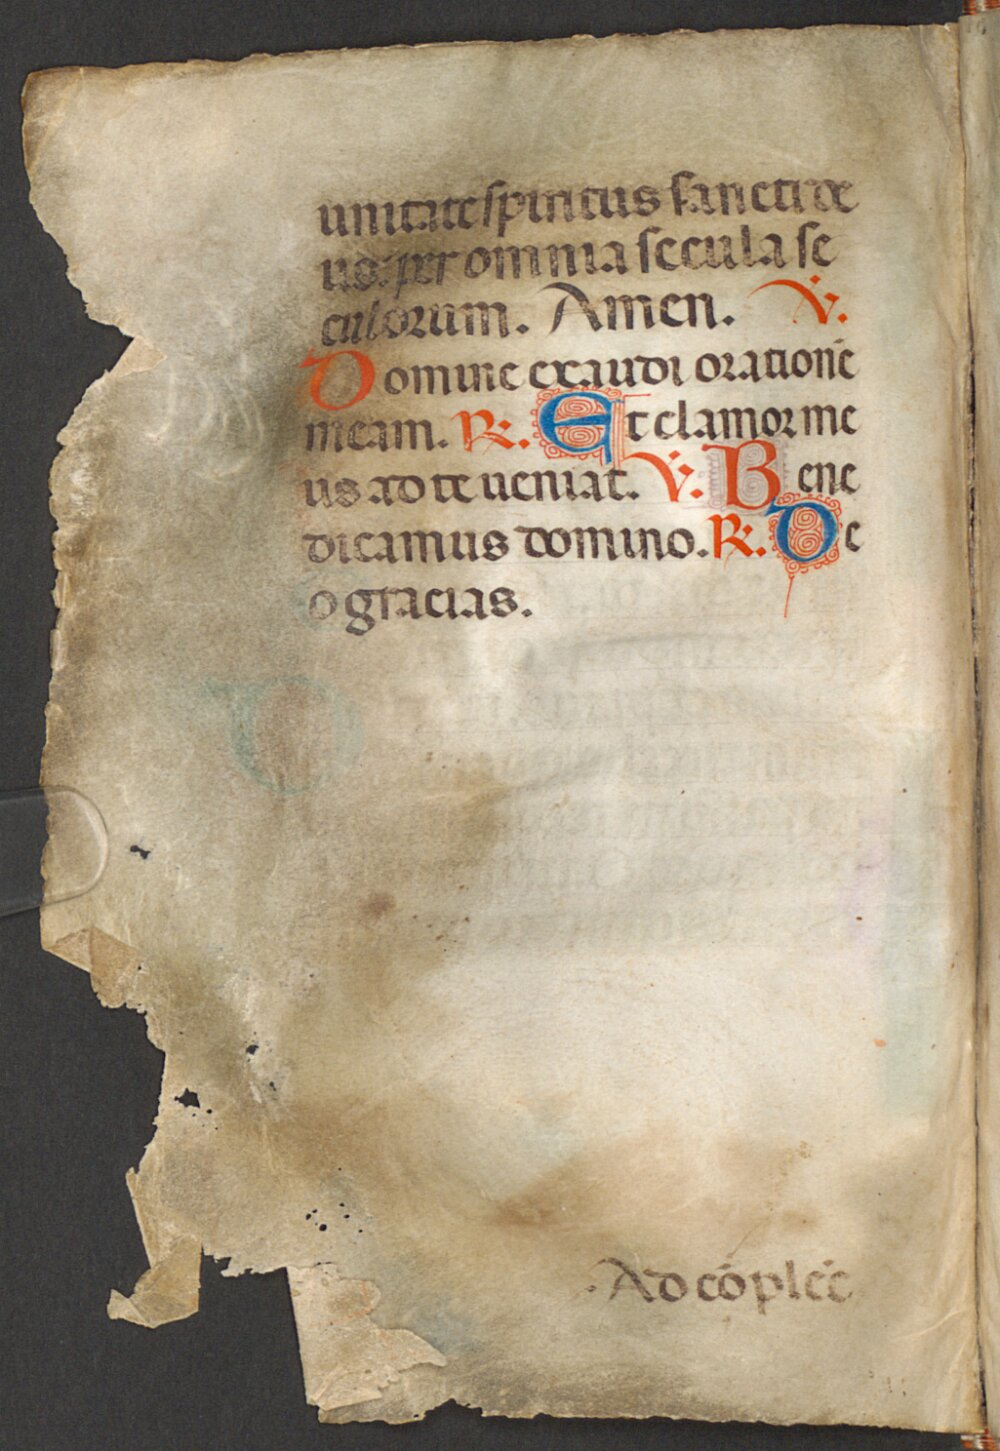 unitate spiritus sancti de
us. per omnia secula se
culorum. Amen. V.
Domine exaudi orationē
meam. R. Et clamor me
us ad te ueniat. V. Bene
dicamus domino. R. De
o gracias.
Ad cōplēt